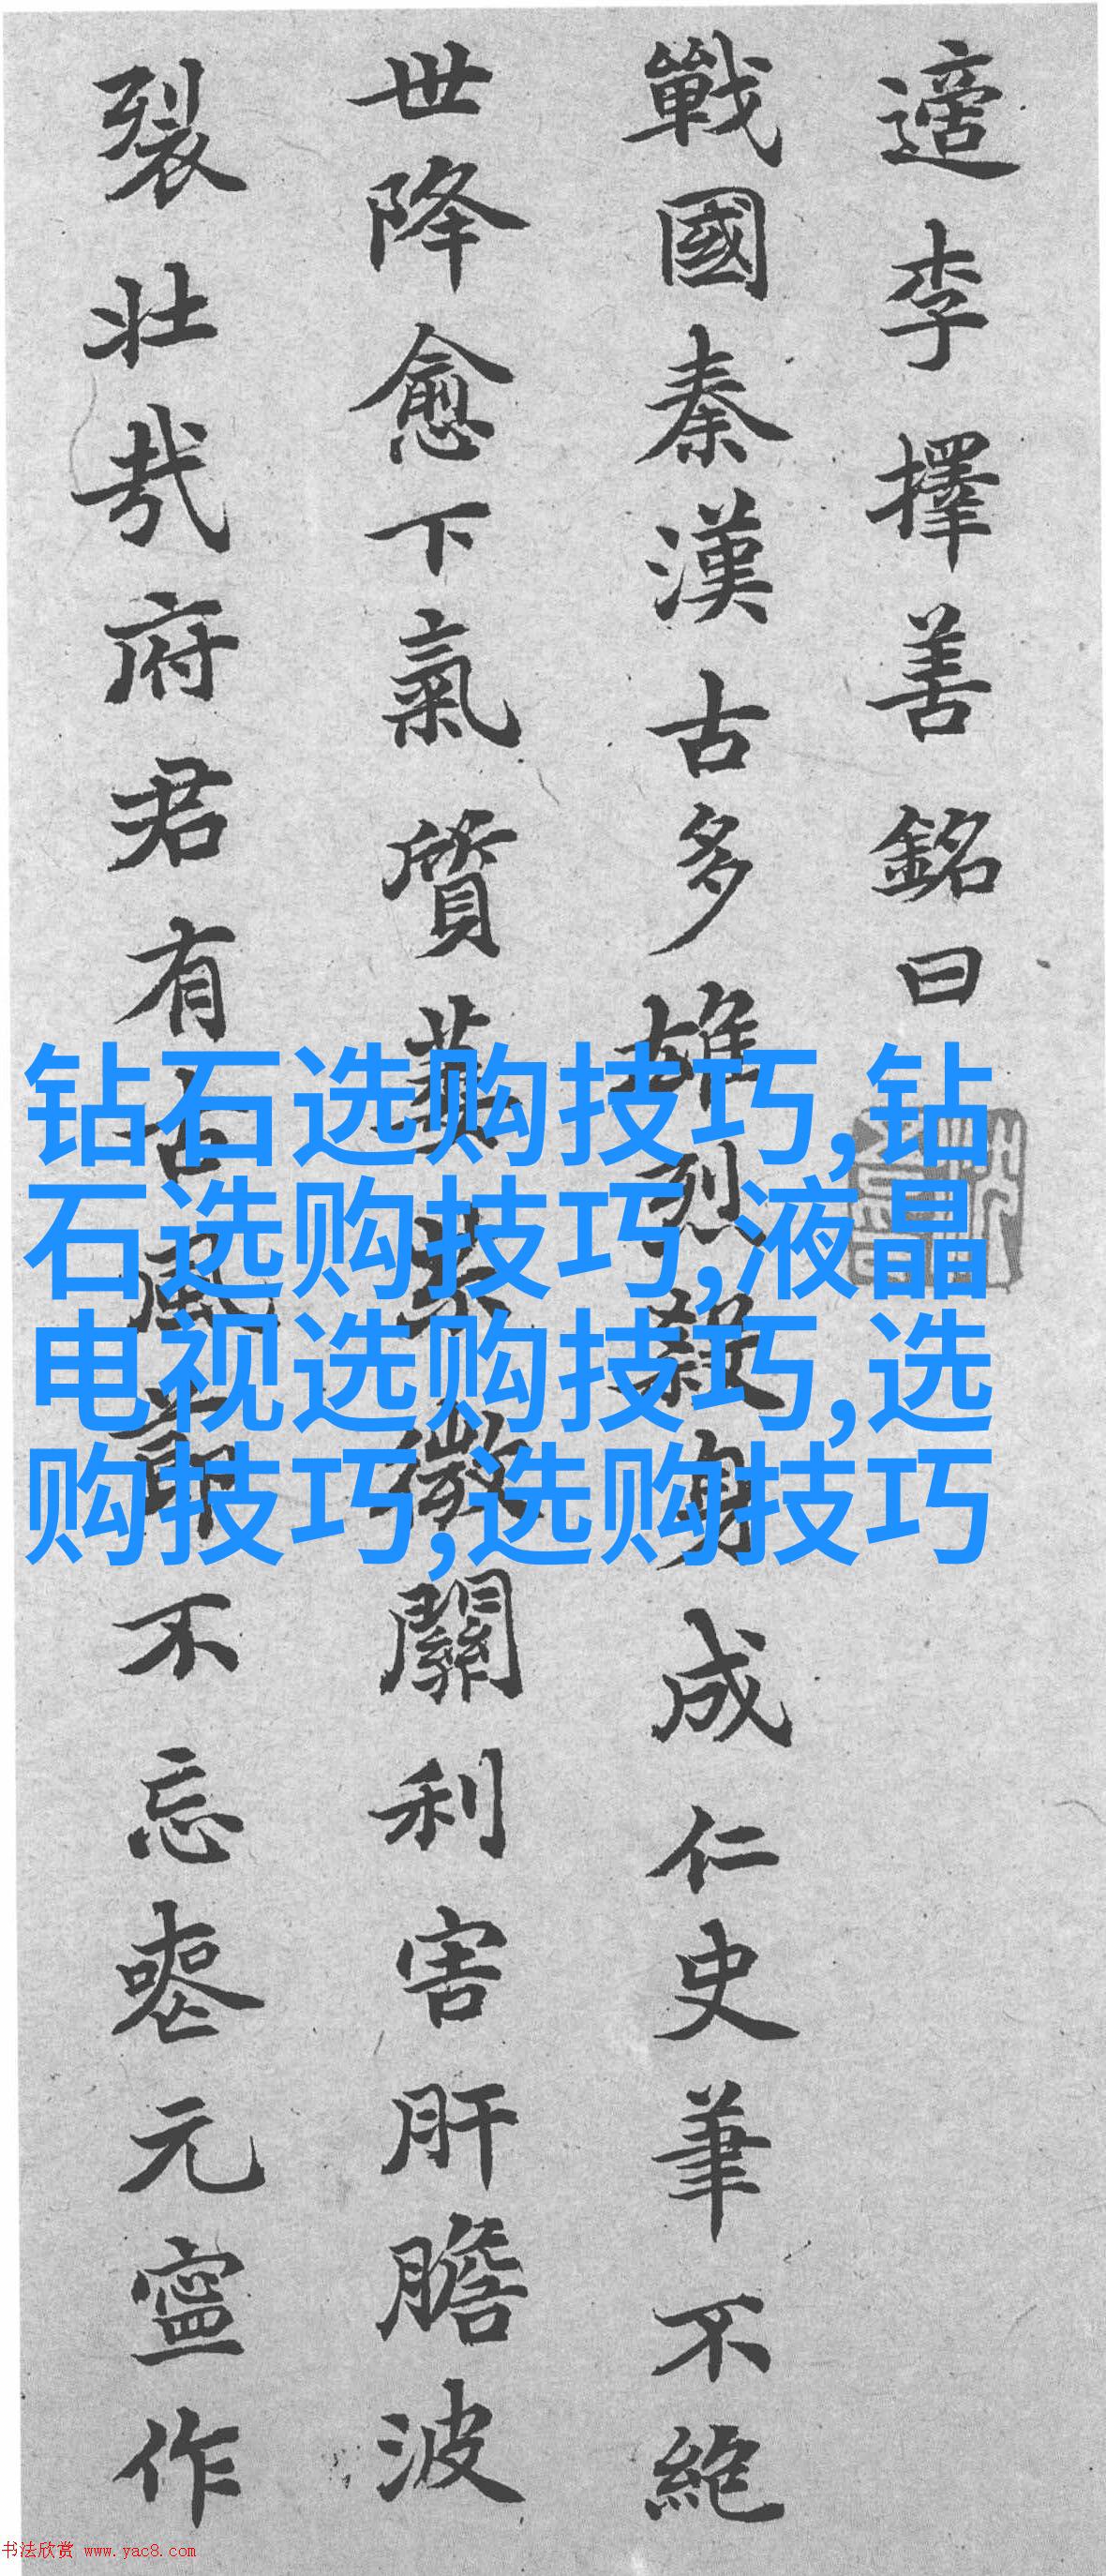 適李擇善銘曰
戰國秦漢古多雄烈殺身成仁史筆不絕
世降愈下氣質微關利害肝膽波
裂壯哉府君有古風節不忘喪元寧作
钻石选购技巧,钻
石选购技巧,液晶
电视选购技巧,选
购技巧,选购技巧
书法欣赏 www.yac8.com